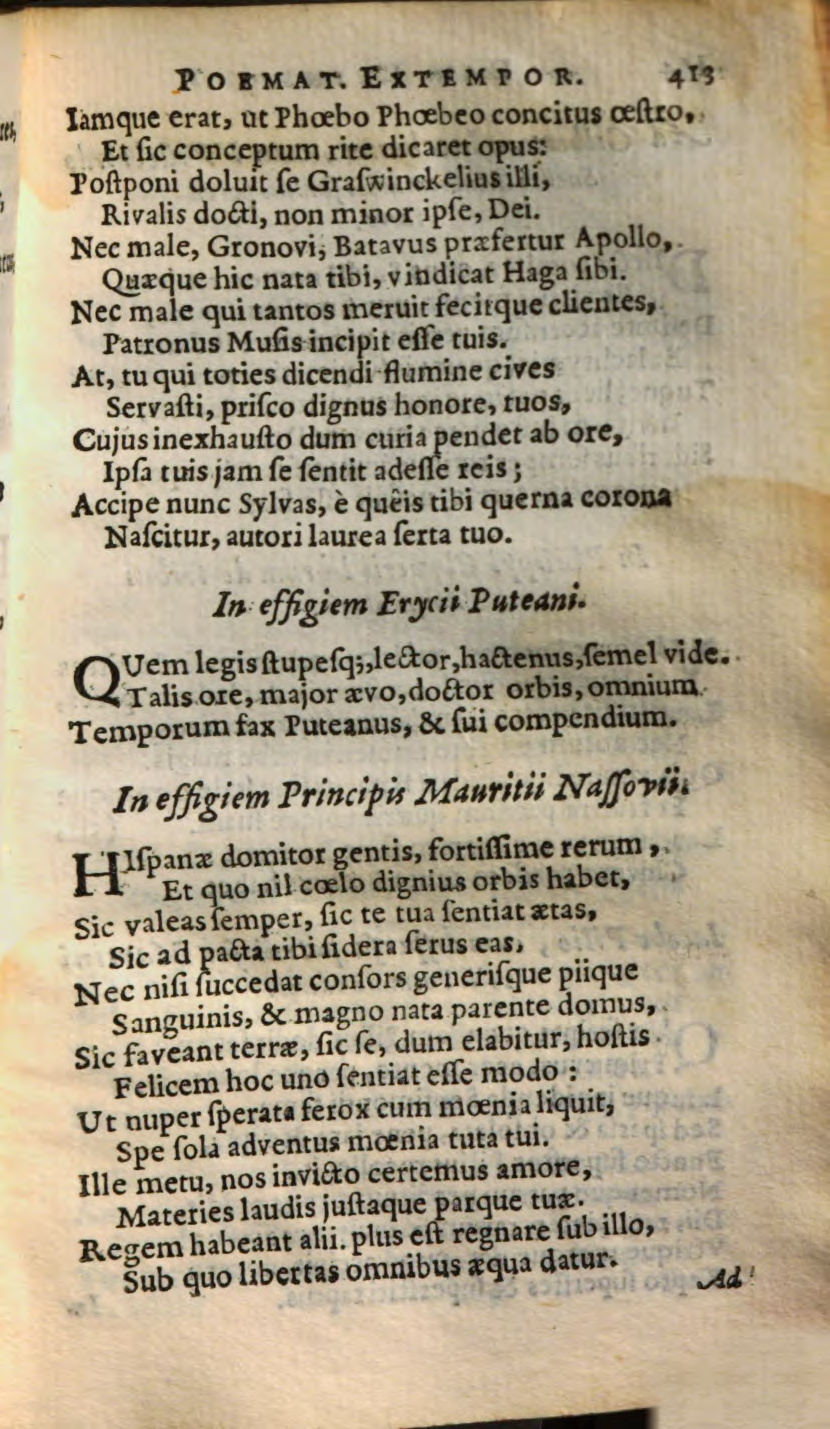 POEMAT. EXTEMPOR. 413
Iamque erat, ut Phœbo Phœbeo concitus œſtro,
Et ſic conceptum rite dicaret opus:
Poſtponi doluit ſe Graſwinckelius illi,
Rivalis docti, non minor ipſe, Dei.
Nec male, Gronovi, Batavus præfertur Apollo,
Quæque hic nata tibi, vindicat Haga ſibi.
Nec male qui tantos meruit fecitque clientes,
Patronus Muſis incipit eſſe tuis.
At, tu qui toties dicendi flumine cives
Servaſti, priſco dignus honore, tuos,
Cujus inexhauſto dum curia pendet ab ore,
Ipſa tuis jam ſe ſentit adeſſe reis;
Accipe nunc Sylvas, è quêis tibi querna corona
Naſcitur, autori laurea ſerta tuo.
In effigiem Erycii Puteani.
QUem legis ſtupeſq;,lector,hactenus,ſemel vide.
Talis ore, major ævo,doctor orbis, omnium
Temporum fax Puteanus, & ſui compendium.
In effigiem Principis Mauritii Naſſovii.
HIſpanæ domitor gentis, fortiſſime rerum,
Et quo nil cœlo dignius orbis habet,
Sic valeas ſemper, ſic te tua ſentiat ætas,
Sic ad pacta tibi ſidera ſerus eas,
Nec niſi ſuccedat conſors generiſque piique
Sanguinis, & magno nata parente domus,
Sic faveant terræ, ſic ſe, dum elabitur, hoſtis
Felicem hoc uno ſentiat eſſe modo:
Ut nuper ſperata ferox cum mœnia liquit,
Spe ſola adventus mœnia tuta tui.
Ille metu, nos invicto certemus amore,
Materies laudis juſtaque parque tuæ.
Regem habeant alii. plus eſt regnare ſub illo,
Sub quo libertas omnibus æqua datur.
Ad